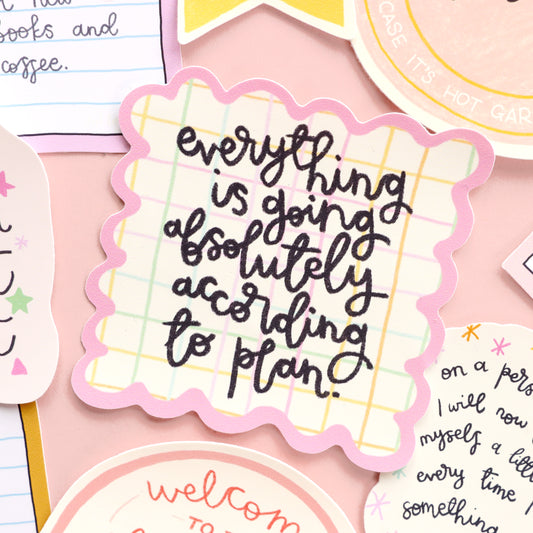 books and
coffee.
CASE IT'S HOT GAR
everything
is going
absolutely
according
to plan.
on a pers
I will now
myself a litt
every time I
something
welcom
TO